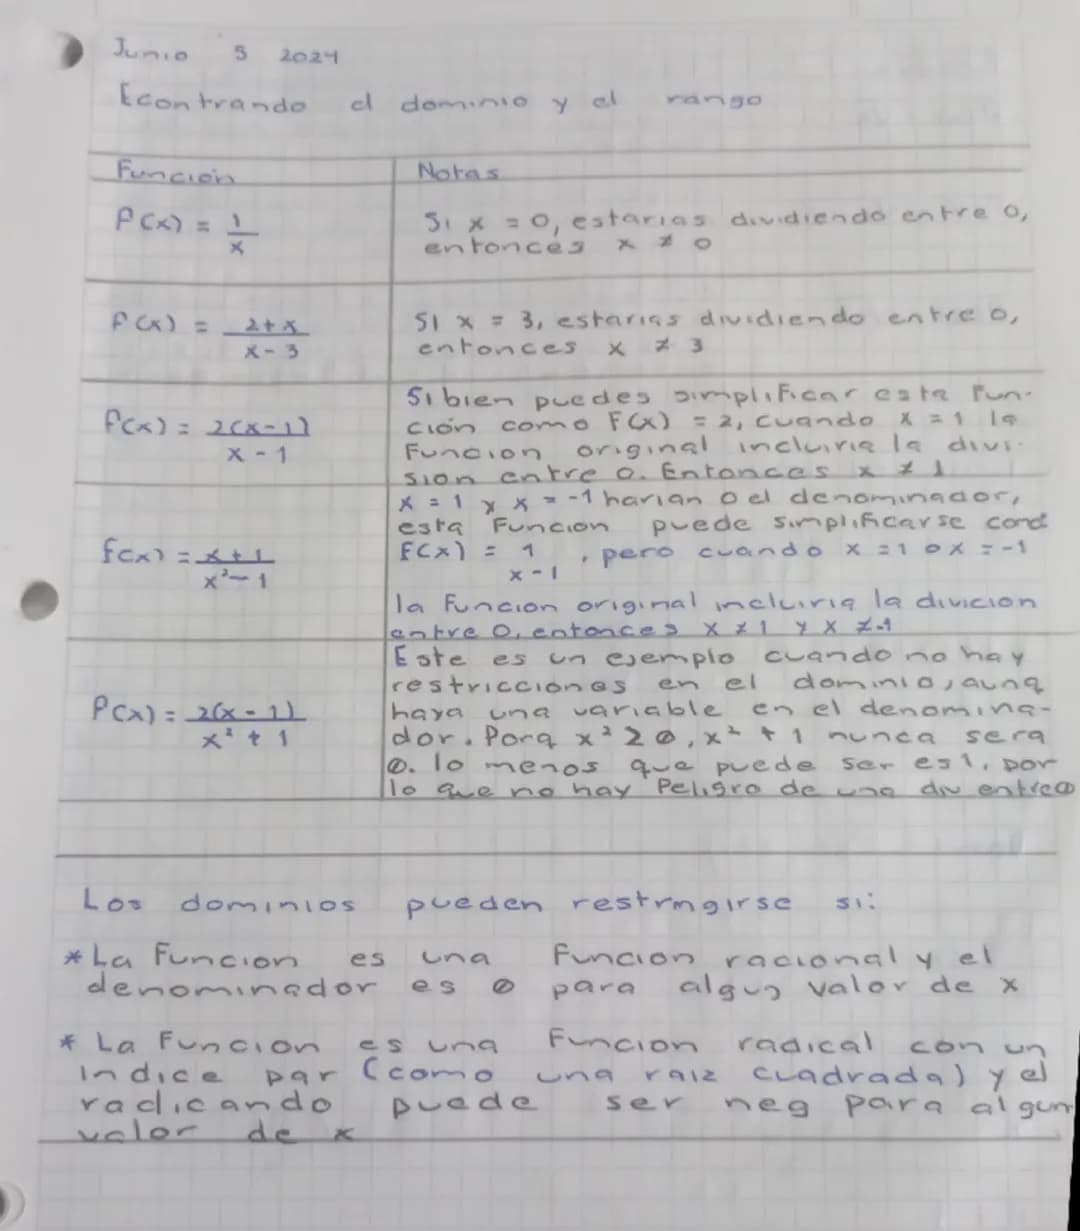 Junio 5 2024
Econtrando el dominio y el rango
Función Notas
f(x) = 1/x Si x = 0, estarias dividiendo entre 0,
entonces x ≠ 0
f(x) = 2+x/x-3 Si x = 3, estarias dividiendo entre 0,
entonces x ≠ 3
Si bien puedes simplificar esta fun-
f(x) = 2(x-1)/x-1 ción como F(x) = 2, cuando x = 1 la
Funcion original incluiria la divi-
sion entre 0. Entonces x ≠ 1
x = 1 y x = -1 harian 0 el denominador,
esta Funcion puede simplificarse como
f(x) = x+1/x²-1 F(x) = 1/x-1, pero cuando x = 1 o x = -1
la Funcion original incluiria la divicion
entre 0, entonces x ≠ 1 y x ≠ -1
Este es un ejemplo cuando no hay
restricciones en el dominio, aunq
f(x) = 2(x-1)/x²+1 haya una variable en el denomina-
dor. Porq x² ≥ 0, x² + 1 nunca sera
0. lo menos que puede ser es 1, por
lo que no hay Peligro de una div entre 0
Los dominios pueden restringirse si:
* La Funcion es una Funcion racional y el
denominador es 0 para algun valor de x
* La Funcion es una Funcion radical con un
indice par (como una raiz cuadrada) y el
radicando puede ser neg para algun
valor de x